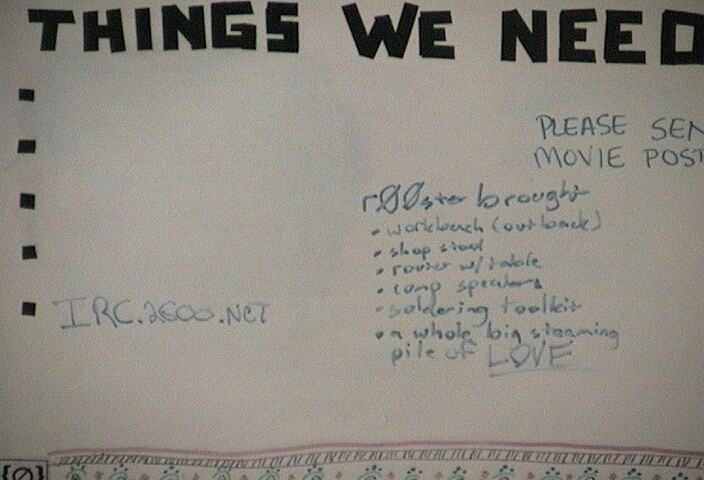 THINGS WE NEED
PLEASE SEN
MOVIE POST
rØØster brought
• workbench (out back)
• shop stool
• router w/ table
• comp speakers
• soldering toolkit
• a whole big steaming
pile of LOVE
IRC.2600.NET
{Ø}